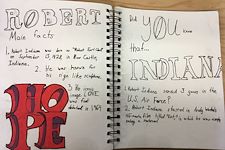 ROBERT
Main facts
1. Robert Indiana was born as "Robert Earl Clark"
on September 13, 1928 in New Castle,
Indiana.
2. He was known for
his sign like
HOPE
3. His iconic
image LOVE
was first
in 1967
Did YOU know
that...
INDIANA
1. Robert Indiana served 3 years in the
U.S. Air Force?
2. Robert Indiana starred in Andy Warhol's
film titled "Eat"